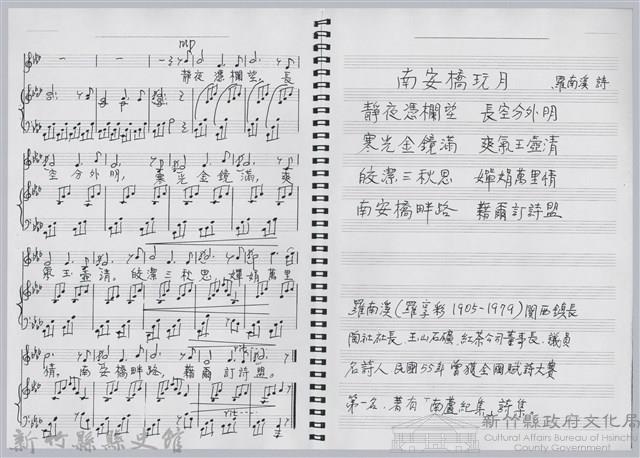 mp
靜夜憑欄望，長
空分外明，寒光金鏡滿，爽
氣玉壺清。皎潔三秋思，嬋娟萬里
情。南安橋畔路，藉爾訂詩盟。
rit...
rit...
南安橋玩月 羅南溪 詩
靜夜憑欄望 長空分外明
寒光金鏡滿 爽氣玉壺清
皎潔三秋思 嬋娟萬里情
南安橋畔路 藉爾訂詩盟
羅南溪(羅享彩 1905-1979)関西鎮長
陶社社長、玉山石礦、紅茶公司董事長、議員
名詩人 民國55年曾獲全國賦詩大賽
第一名、著有「南盧紀集」詩集。
新竹縣縣史館
新竹縣政府文化局
Cultural Affairs Bureau of Hsinchu
County Government